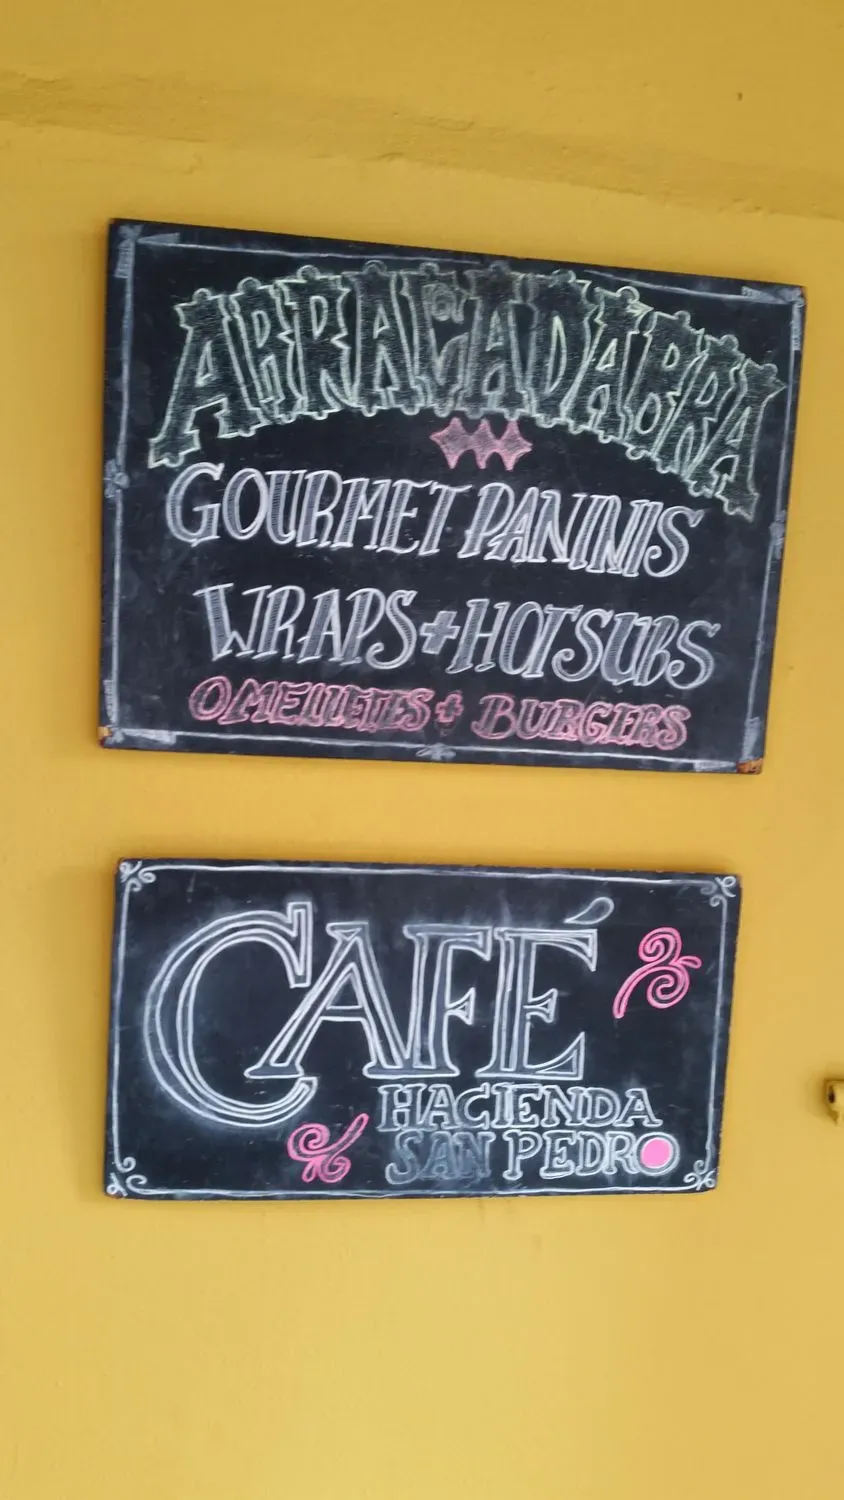 ABRACADABRA
GOURMET PANINIS
WRAPS + HOT SUBS
OMELLETES + BURGERS
CAFÉ
HACIENDA
SAN PEDRO